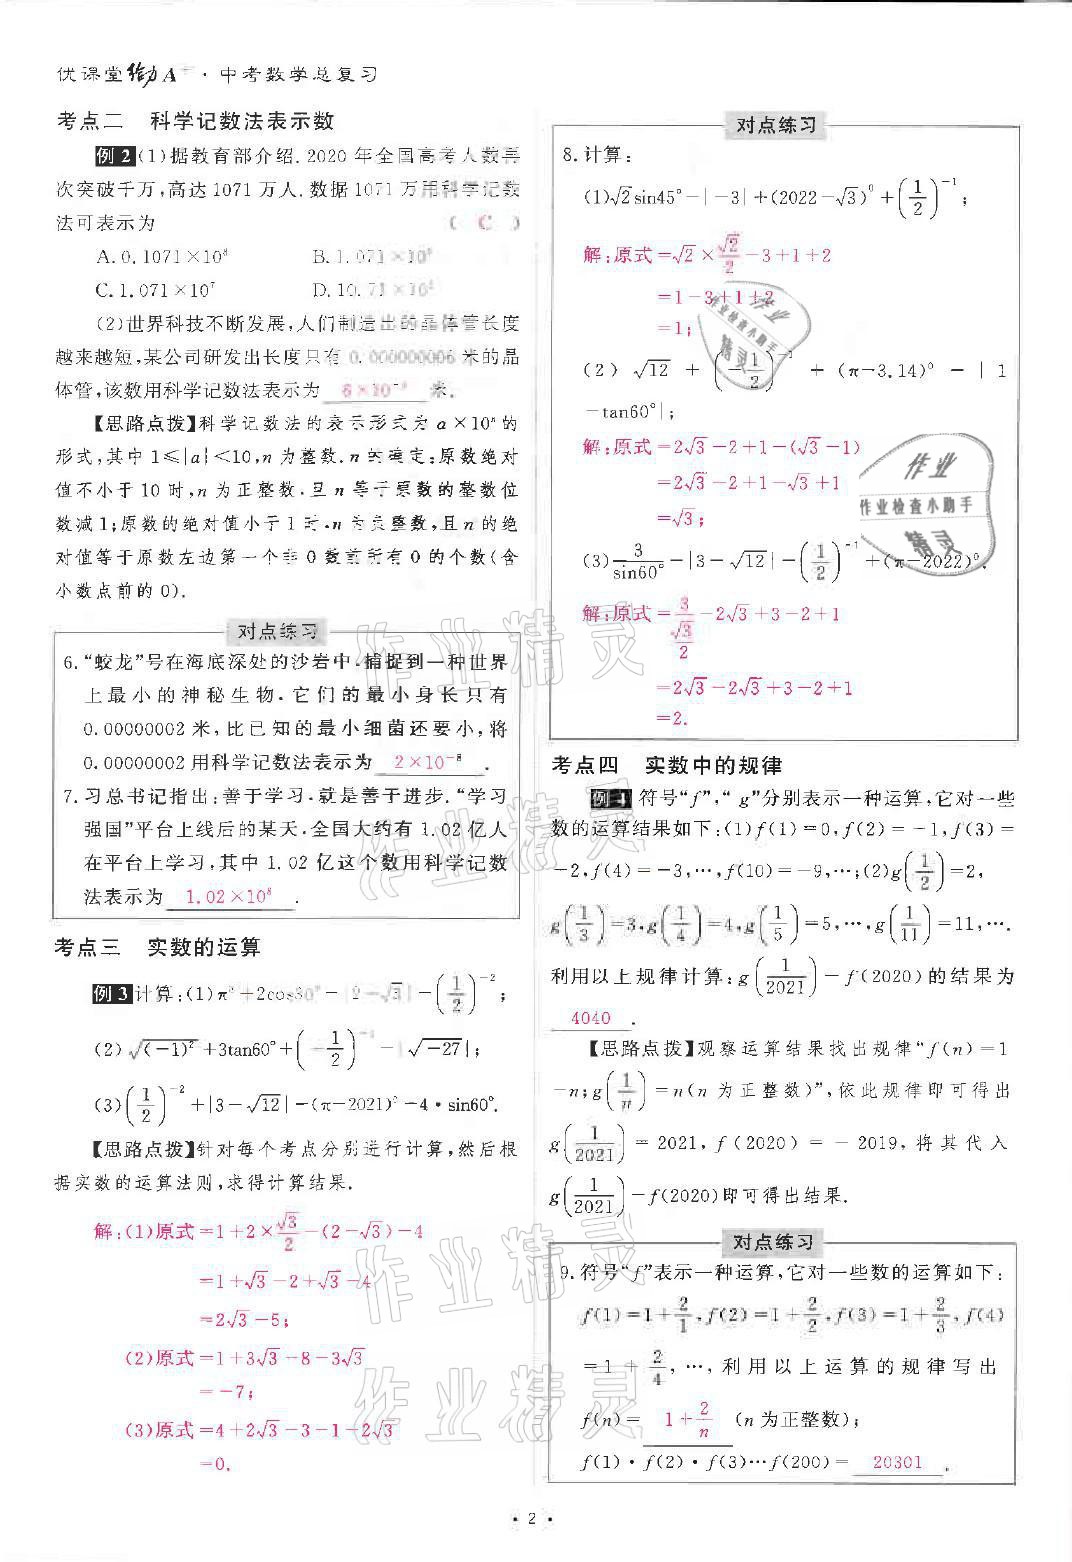 优课堂给力A⁺·中考数学总复习
考点二 科学记数法表示数
例2 (1)据教育部介绍.2020年全国高考人数再
次突破千万,高达1071万人.数据1071万用科学记数
法可表示为 ( C )
A.0.1071×10⁸ B.1.071×10⁶
C.1.071×10⁷ D.10.71×10⁶
(2)世界科技不断发展,人们制造出的晶体管长度
越来越短,某公司研发出长度只有0.000000006米的晶
体管,该数用科学记数法表示为 6×10⁻⁹ 米.
【思路点拨】科学记数法的表示形式为a×10ⁿ的
形式,其中1≤|a|<10,n为整数.n的确定:原数绝对
值不小于10时,n为正整数.且n等于原数的整数位
数减1;原数的绝对值小于1时.n为负整数,且n的绝
对值等于原数左边第一个非0数前所有0的个数(含
小数点前的0).
对点练习
6.“蛟龙”号在海底深处的沙岩中.捕捉到一种世界
上最小的神秘生物.它们的最小身长只有
0.00000002米,比已知的最小细菌还要小,将
0.00000002用科学记数法表示为 2×10⁻⁸ .
7.习总书记指出:善于学习.就是善于进步.“学习
强国”平台上线后的某天.全国大约有1.02亿人
在平台上学习,其中1.02亿这个数用科学记数
法表示为 1.02×10⁸ .
考点三 实数的运算
例3 计算:(1)π⁰+2cos30°-|2-√3|-(1/2)⁻²;
(2)√(-1)²+3tan60°+(-1/2)⁻³-|√-27|;
(3)(1/2)⁻²+|3-√12|-(π-2021)⁰-4·sin60°.
【思路点拨】针对每个考点分别进行计算,然后根
据实数的运算法则,求得计算结果.
解:(1)原式=1+2×√3/2-(2-√3)-4
=1+√3-2+√3-4
=2√3-5;
(2)原式=1+3√3-8-3√3
=-7;
(3)原式=4+2√3-3-1-2√3
=0.
对点练习
8.计算:
(1)√2sin45°-|-3|+(2022-√3)⁰+(1/2)⁻¹;
解:原式=√2×√2/2-3+1+2
=1-3+1+2
=1;
(2)√12+(-1/2)⁻¹+(π-3.14)⁰-|1
-tan60°|;
解:原式=2√3-2+1-(√3-1)
=2√3-2+1-√3+1
=√3;
(3)3/sin60°-|3-√12|-(1/2)⁻¹+(π-2022)⁰.
解:原式=3/(√3/2)-2√3+3-2+1
=2√3-2√3+3-2+1
=2.
考点四 实数中的规律
例4 符号“f”,“g”分别表示一种运算,它对一些
数的运算结果如下:(1)f(1)=0,f(2)=-1,f(3)=
-2,f(4)=-3,…,f(10)=-9,…;(2)g(1/2)=2,
g(1/3)=3,g(1/4)=4,g(1/5)=5,…,g(1/11)=11,….
利用以上规律计算:g(1/2021)-f(2020)的结果为
4040 .
【思路点拨】观察运算结果找出规律“f(n)=1
-n;g(1/n)=n(n为正整数)”,依此规律即可得出
g(1/2021)=2021,f(2020)=-2019,将其代入
g(1/2021)-f(2020)即可得出结果.
对点练习
9.符号“f”表示一种运算,它对一些数的运算如下:
f(1)=1+2/1,f(2)=1+2/2,f(3)=1+2/3,f(4)
=1+2/4,…,利用以上运算的规律写出
f(n)= 1+2/n (n为正整数);
f(1)·f(2)·f(3)…f(200)= 20301 .
·2·
作业精灵
作业精灵
作业精灵
作业精灵
作业
作业检查小助手
精灵
作业
作业检查小助手
精灵